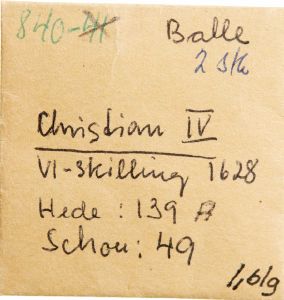 840-41
Balle
2 stk
Christian IV
VI-Skilling 1628
Hede: 139 A
Schou: 49
1,61g